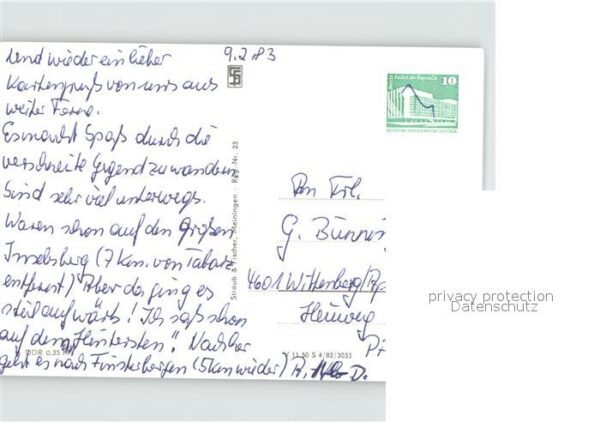 Und wieder ein lieber
Kartengruß von uns aus
weiter Ferne.
Es macht Spaß durch die
verschneite Gegend zu wandern
Sind sehr viel unterwegs.
Waren schon auf den Großen
Inselsberg (7 km. von Tabarz
entfernt) Aber da ging es
steil aufwärts! Ich saß schon
auf dem "Hintersten". Nachher
geht es nach Finsterbergen (5 km wieder)
DDR 0,25 M
9.2.83
Straub & Fischer, Meiningen - Reg.-Nr. 23
V 11 50 S 4/82/3033
Palast der Republik
10
DEUTSCHE DEMOKRATISCHE REPUBLIK
An Frl.
G.
4601 Wittenberg
privacy protection
Datenschutz